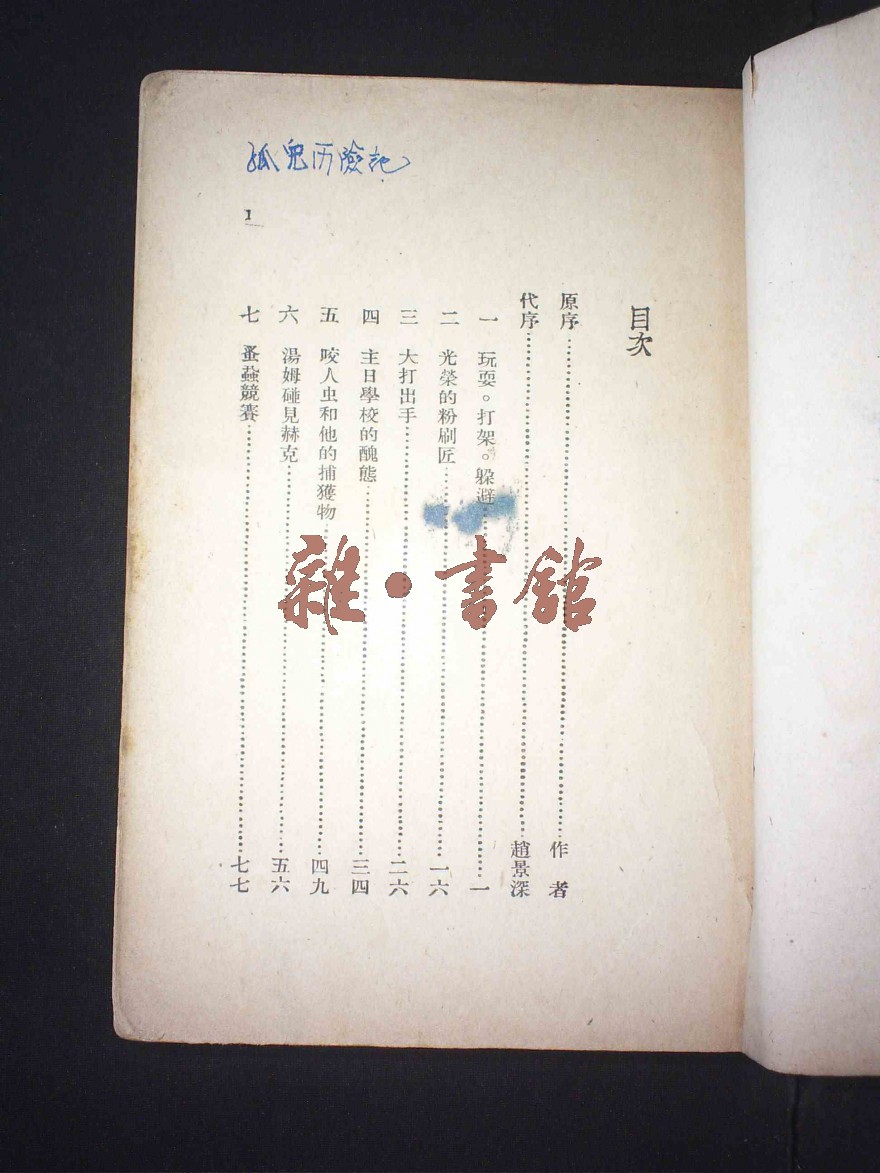 孤兒历險记
1
目次
原序……作者
代序……趙景深
一 玩耍。打架。躲避……一
二 光榮的粉刷匠……一六
三 大打出手……二六
四 主日學校的醜態……三四
五 咬人虫和他的捕獲物……四九
六 湯姆碰見赫克……五六
七 蚤蝨競賽……七七
雜·書館